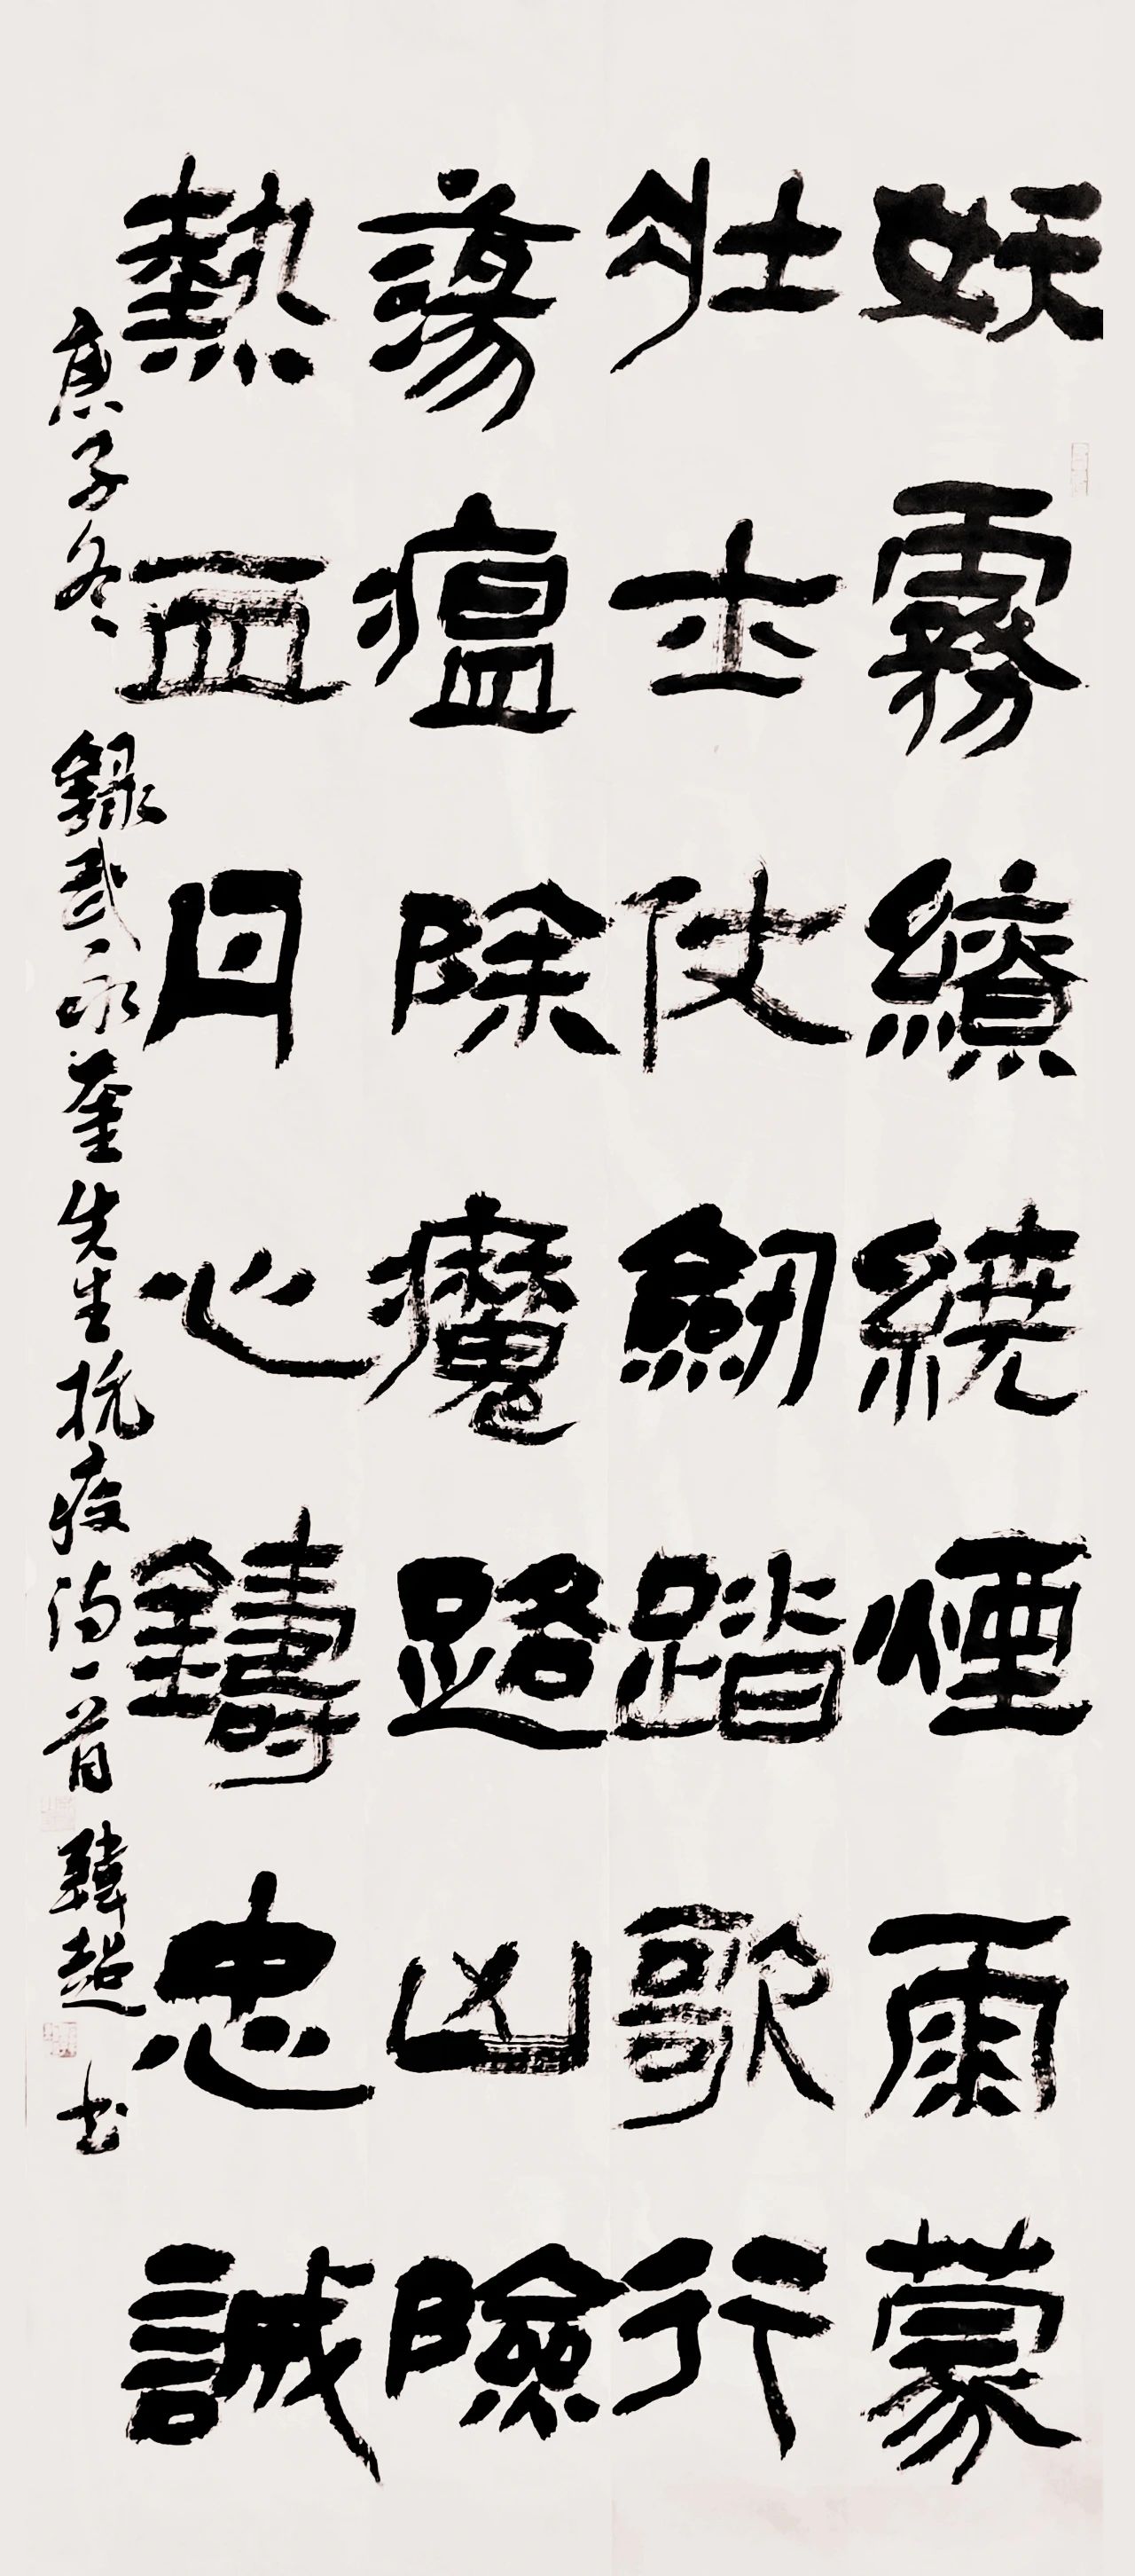 妖霧繽繞煙雨蒙
壯士仗劒踏歌行
蕩瘟除魔路凶險
熱血丹心鑄忠誠
庚子冬 錄武永奎先生抗疫詩一首 韓超書